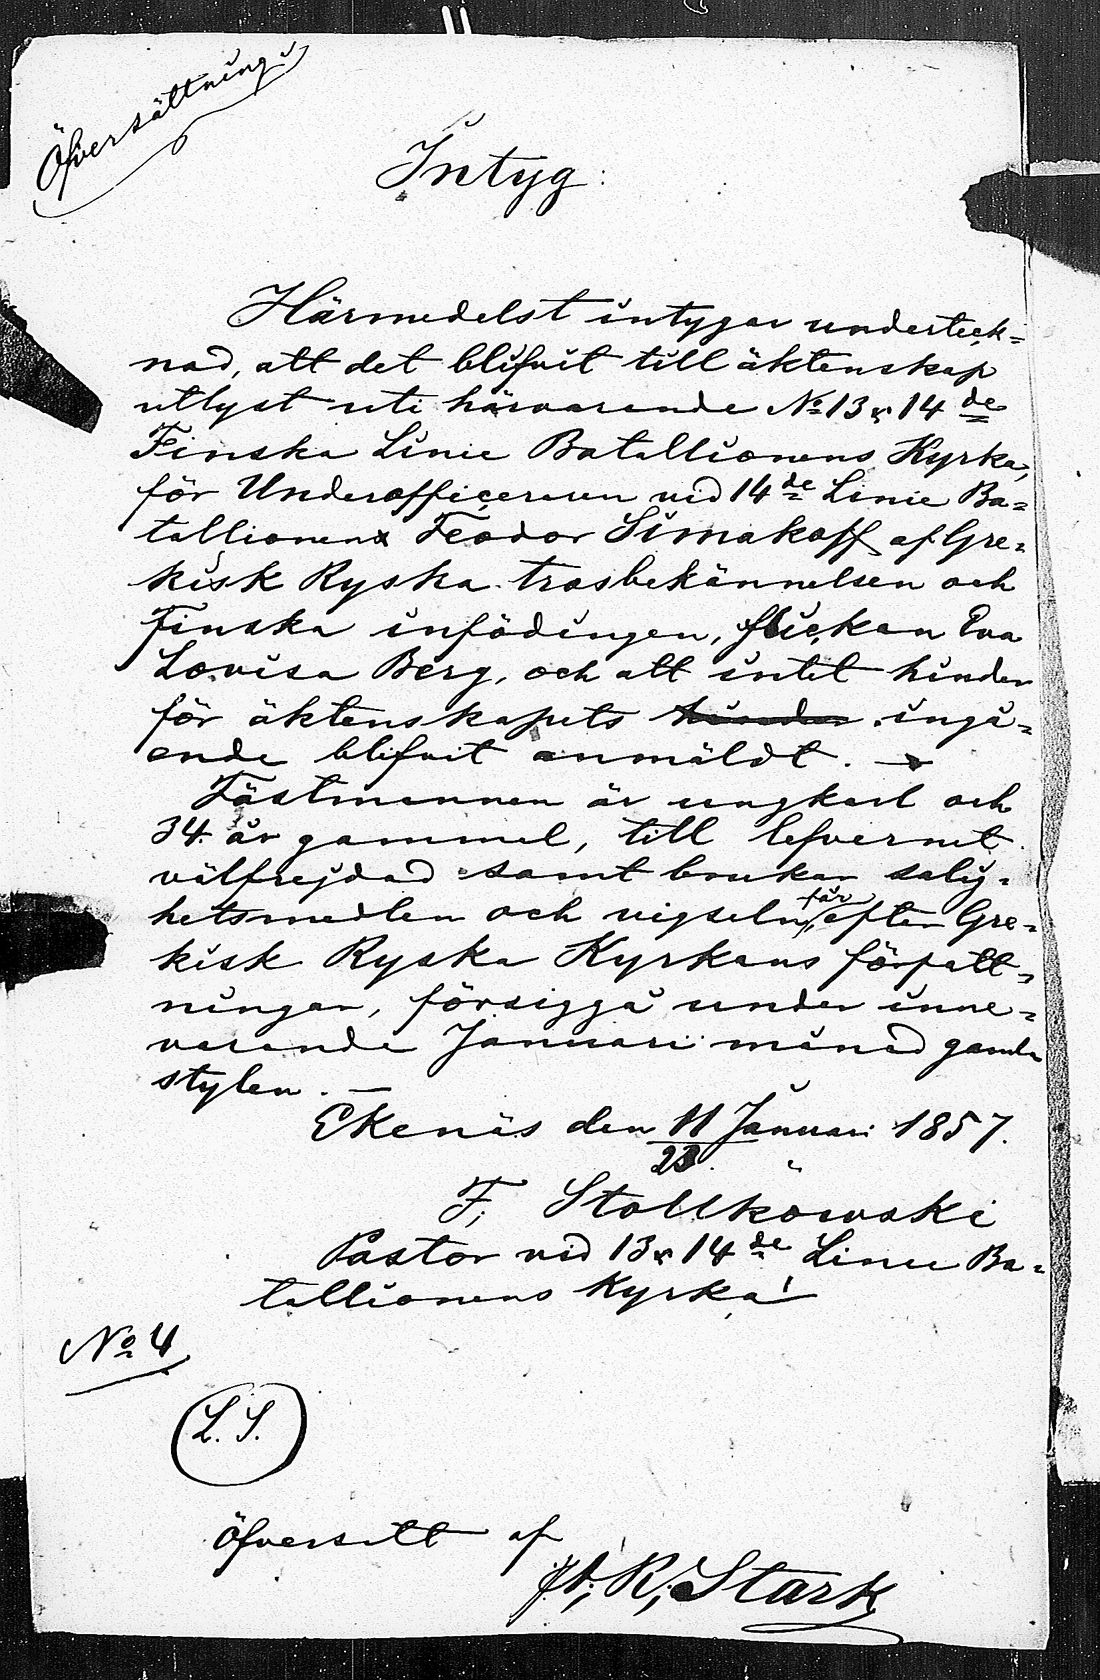 Öfversättning
Intyg:
Härmedelst intygar underteck=
nad, att det blifvit till äktenskap
utlyst uti härvarande No 13 & 14 de
Finska Linie Batallionens Kyrka,
för Underofficeraren vid 14 de Linie Ba=
tallionen Feodor Simakoff af Gre=
kisk Ryska trosbekännelsen och
Finska infödingen, flickan Eva
Lovisa Berg, och att intet hinder
för äktenskapets hinder ingå=
ende blifvit anmäldt. —
Fästmannen är ungkarl och
34. år gammal, till lefvernet
välfrejdad samt brukar salig=
hetsmedlen och vigseln får efter Gre=
kisk Ryska Kyrkans författ=
ningar, försiggå under inne=
varande Januari månad gamla
stylen. —
Ekenäs den 11/23 Januari 1857.
F. Stollkowski
Pastor vid 13 & 14 de Linie Ba=
tallionens Kyrka!
No 4
L. S.
Öfversatt af
R. Stark